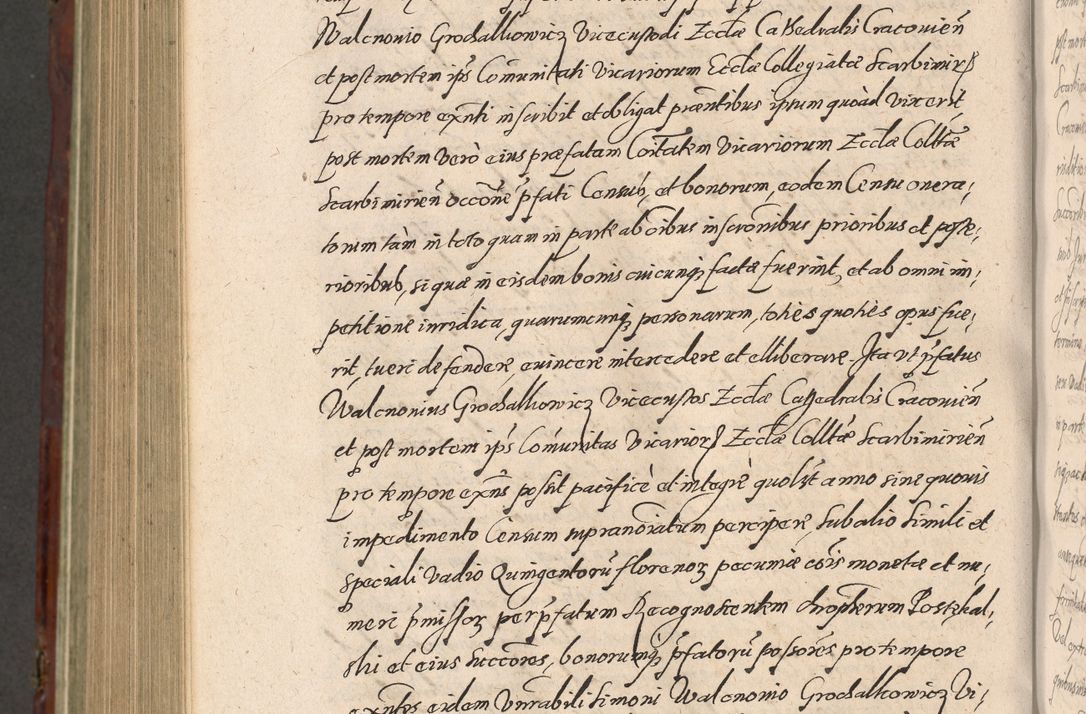 Walcnonio Grochalkowicz Vicecustodi Eccłæ Cathedralis Cracouień
et post mortem ip̃s Com̃unitati Vicariorum Eccłæ Collegiatæ Scarbimir̃
pro tempore ex̃nti inscribit et obligat præntibus ipsum quoàd vixerit
post mortem verò eius præfatam Coitatem Vicariorum Eccłæ Colltæ
Scarbimirień occõne p̃fati Census, et bonorum, eodem Censu onera,
torum tàm in toto quam in parte ab oibus inscrõnibus prioribus et poste,
rioribus, si quæ in eisdem bonis cuicunq̃ factæ fuerint, et ab omni im,
petitione iuridica, quarumcunq̃ personarum, toties quoties opus fue,
rit, tueri defendere, euincere intercedere et elliberare. Ita vt p̃fatus
Walcnonius Grochalkowicz Vicecustos Eccłæ Cathedralis Cracouień
et post mortem ip̃s Com̃unitas Vicarior Eccłæ Colltæ Scarbimirień
pro tempore ex̃ns possit pacificè et integrè quolt anno sine quouis
impedimento Censum supranoiatum percipere, sub alio simili et
speciali vadio Quingentorũ florenor pecuniæ cõis monetæ et nu,
meri p̃missor per p̃fatum Recognoscentem Christopherum Rostzkal,
ski et eius succores, bonorumq̃ p̃fatorũ possores pro tempore
ex̃ntes eidem Vnrabili Simoni Walcnonio Grochalkowicz Vi,